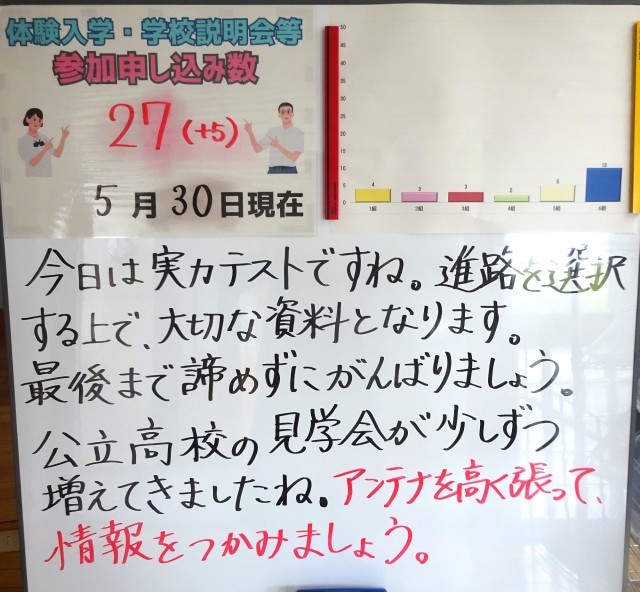 体験入学・学校説明会等
参加申し込み数
27(+5)
5月30日現在
50
45
40
35
30
25
20
15
10
5
0
4 3 3 2 5 10
1組 2組 3組 4組 5組 6組
今日は実力テストですね。進路を選択
する上で、大切な資料となります。
最後まで諦めずにがんばりましょう。
公立高校の見学会が少しずつ
増えてきましたね。アンテナを高く張って、
情報をつかみましょう。